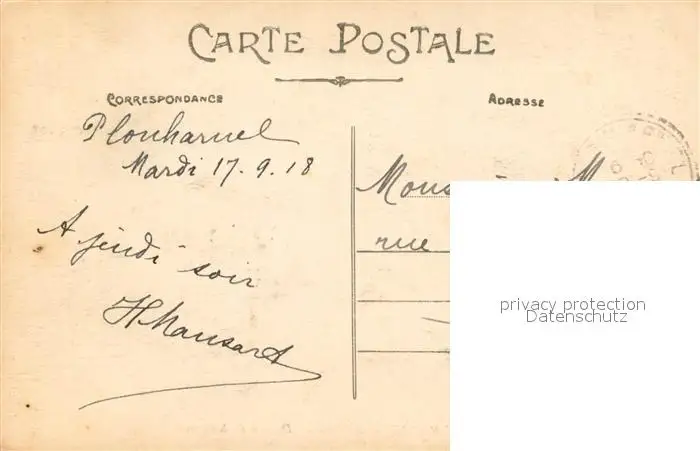 CARTE POSTALE
CORRESPONDANCE
ADRESSE
Plouharnel
Mardi 17.9.18
A jeudi soir
H Mansart
rue
privacy protection
Datenschutz